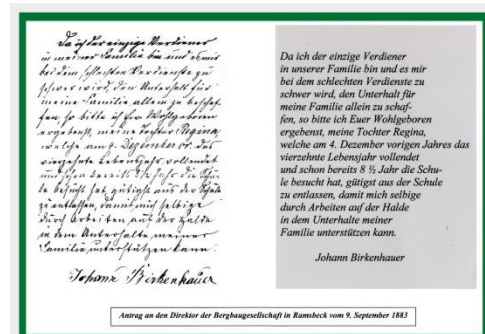 Da ich der einzige Verdiener
in meiner Familie bin und es mir
bei dem schlechten Verdienste zu
schwer wird, den Unterhalt für
meine Familie allein zu beschaf-
fen, so bitte ich Ew. Wohlgeboren
ergebenst, meine Tochter Regina,
welche am 4. Dezember das
vierzehnte Lebensjahr vollendet
und schon bereits Jahr die Schu-
le besucht hat, gütigst aus der Schule
zu entlassen, damit mich selbige
durch Arbeiten auf der Halde
in dem Unterhalte meiner
Familie unterstützen kann.
Johann Birkenhauer
Da ich der einzige Verdiener
in unserer Familie bin und es mir
bei dem schlechten Verdienste zu
schwer wird, den Unterhalt für
meine Familie allein zu schaf-
fen, so bitte ich Euer Wohlgeboren
ergebenst, meine Tochter Regina,
welche am 4. Dezember vorigen Jahres das
vierzehnte Lebensjahr vollendet
und schon bereits 8 ½ Jahr die Schu-
le besucht hat, gütigst aus der Schule
zu entlassen, damit mich selbige
durch Arbeiten auf der Halde
in dem Unterhalte meiner
Familie unterstützen kann.
Johann Birkenhauer
Antrag an den Direktor der Bergbaugesellschaft in Ramsbeck vom 9. September 1883